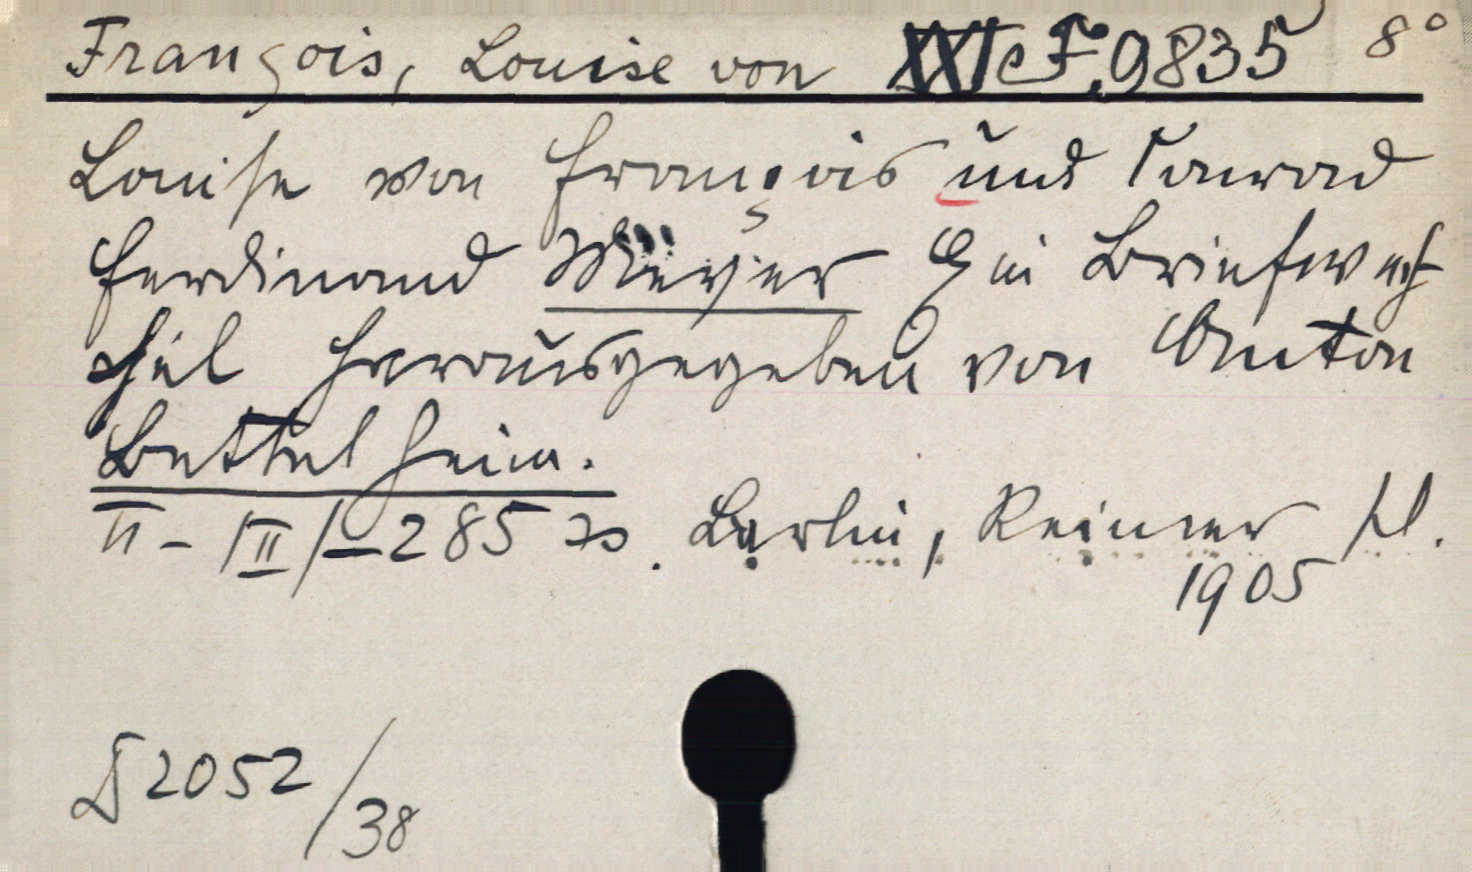 François, Louise von XXI e F. 9835 8°
Louise von François und Conrad
Ferdinand Meyer Ein Briefwech
sel herausgegeben von Anton
Bettelheim.
II - |II| - 285 S. Berlin, Reimer
1905
2052/38